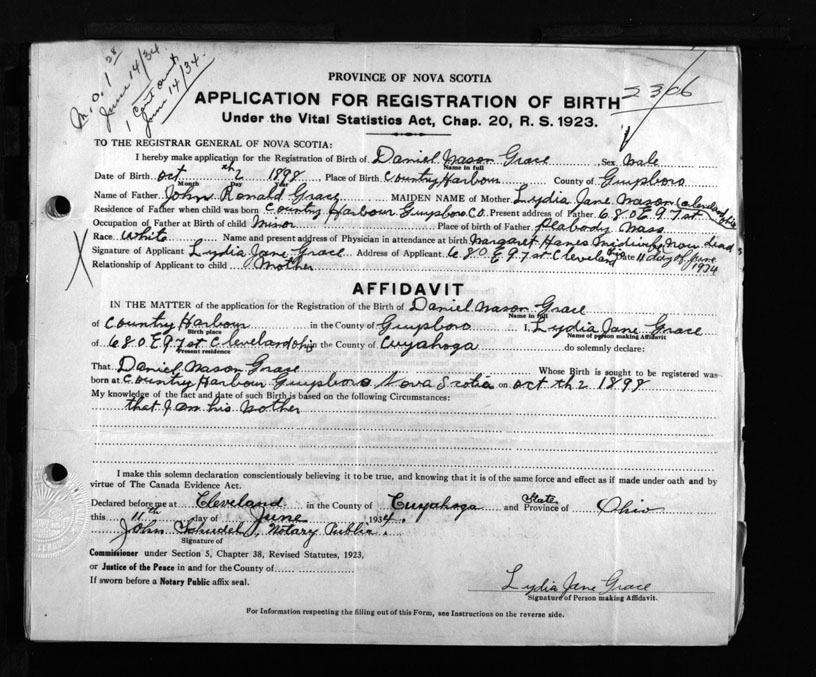 M.O. 1 28
June 14/34
1 Cert out
June 14/34.
PROVINCE OF NOVA SCOTIA
APPLICATION FOR REGISTRATION OF BIRTH 2306
Under the Vital Statistics Act, Chap. 20, R. S. 1923.
TO THE REGISTRAR GENERAL OF NOVA SCOTIA:
I hereby make application for the Registration of Birth of Daniel Mason Grace Sex Male
Name in full
Date of Birth Oct th 2 1898 Place of Birth Country Harbour County of Guysboro
Month Day Year
Name of Father John Ronald Grace MAIDEN NAME of Mother Lydia Jane Mason (Cleveland Ohio
Residence of Father when child was born Country Harbour Guysboro. C.O. Present address of Father 680 E 97 st
Occupation of Father at Birth of child Minor Place of birth of Father Peabody Mass
Race White Name and present address of Physician in attendance at birth Margaret Hanes Midwife Now dead
Signature of Applicant Lydia Jane Grace Address of Applicant 680 E 97 st Cleveland Date 11 day of June 1934
Relationship of Applicant to child Mother
AFFIDAVIT
IN THE MATTER of the application for the Registration of the Birth of Daniel Mason Grace
Name in full
of Country Harbour in the County of Guysboro I, Lydia Jane Grace
Birth place Name of person making Affidavit
of 680 E 97 st Cleveland Ohio in the County of Cuyahoga do solemnly declare:
Present residence
That Daniel Mason Grace Whose Birth is sought to be registered was
born at Country Harbour Guysboro Nova Scotia on Oct th 2 1898
My knowledge of the fact and date of such Birth is based on the following Circumstances:
that I am his Mother
I make this solemn declaration conscientiously believing it to be true, and knowing that it is of the same force and effect as if made under oath and by
virtue of The Canada Evidence Act.
Declared before me at Cleveland in the County of Cuyahoga and State Province of Ohio
this 11th day of June 1934.
John Schudel, Notary Public.
Signature of
Commissioner under Section 5, Chapter 38, Revised Statutes, 1923,
or Justice of the Peace in and for the County of
If sworn before a Notary Public affix seal.
Lydia Jane Grace
Signature of Person making Affidavit.
For Information respecting the filling out of this Form, see Instructions on the reverse side.